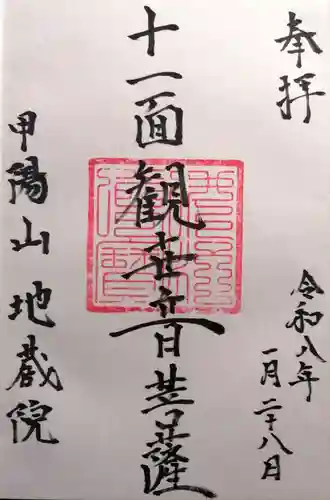 奉拝
令和八年
一月二十八日
十一面観世音菩薩
甲陽山地蔵院